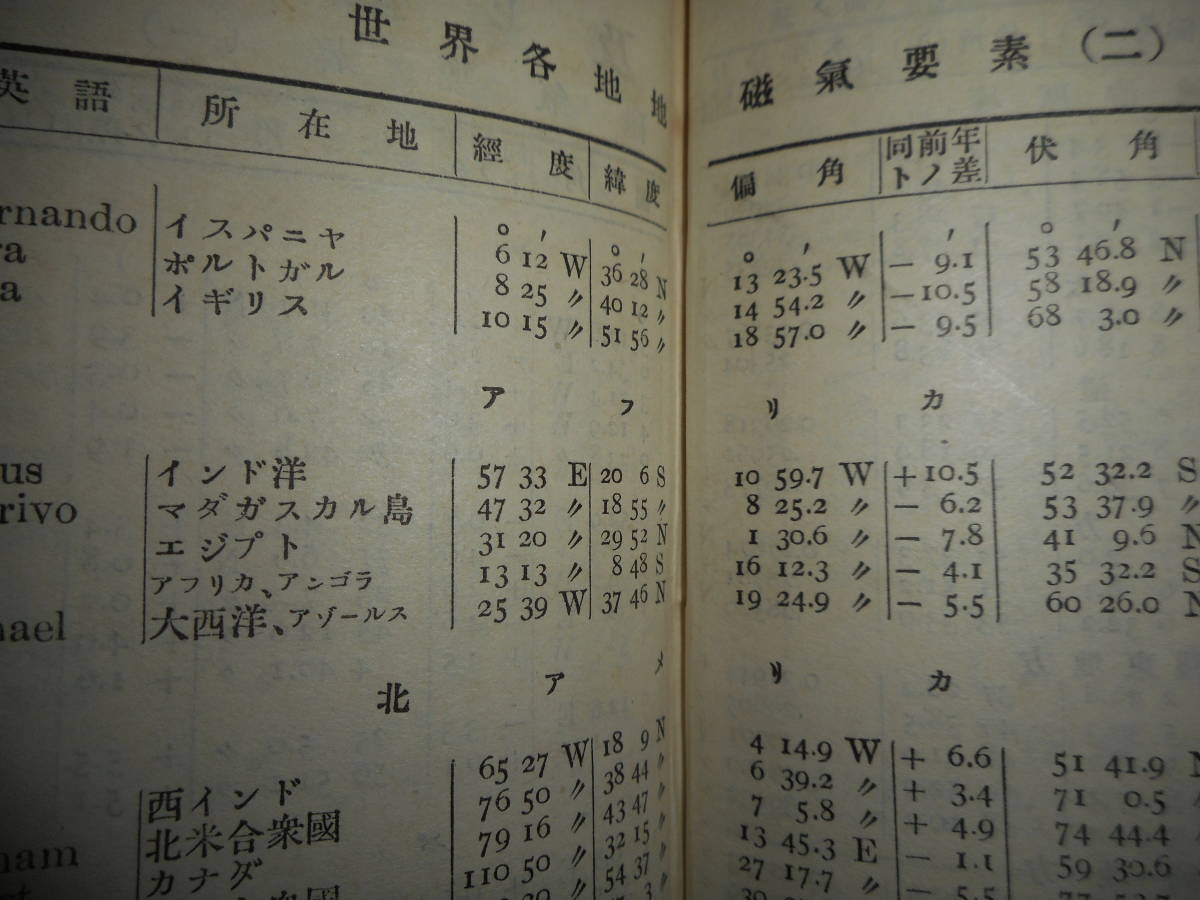 世界各地地磁氣要素(二)
英語 所在地 經度 緯度 偏角 同前年ト ノ差 伏角
rnando イスパニヤ 6 12 W 36 28 N 13 23.5 W − 9.1 53 46.8 N
ra ポルトガル 8 25 〃 40 12 〃 14 54.2 〃 −10.5 58 18.9 〃
a イギリス 10 15 〃 51 56 〃 18 57.0 〃 − 9.5 68 3.0 〃
アフリカ
us インド洋 57 33 E 20 6 S 10 59.7 W +10.5 52 32.2 S
rivo マダガスカル島 47 32 〃 18 55 〃 8 25.2 〃 − 6.2 53 37.9 〃
エジプト 31 20 〃 29 52 N 1 30.6 〃 − 7.8 41 9.6 N
アフリカ、アンゴラ 13 13 〃 8 48 S 16 12.3 〃 − 4.1 35 32.2 S
hael 大西洋、アゾールス 25 39 W 37 46 N 19 24.9 〃 − 5.5 60 26.0 N
北アメリカ
西インド 65 27 W 18 9 N 4 14.9 W + 6.6 51 41.9 N
北米合衆國 76 50 〃 38 44 〃 6 39.2 〃 + 3.4 71 0.5
ham カナダ 79 16 〃 43 47 〃 7 5.8 〃 + 4.9 74 44.4
合衆國 110 50 〃 32 15 〃 13 45.3 E − 1.1 59 30.6
54 37 〃 27 17.7 〃 − 5.5